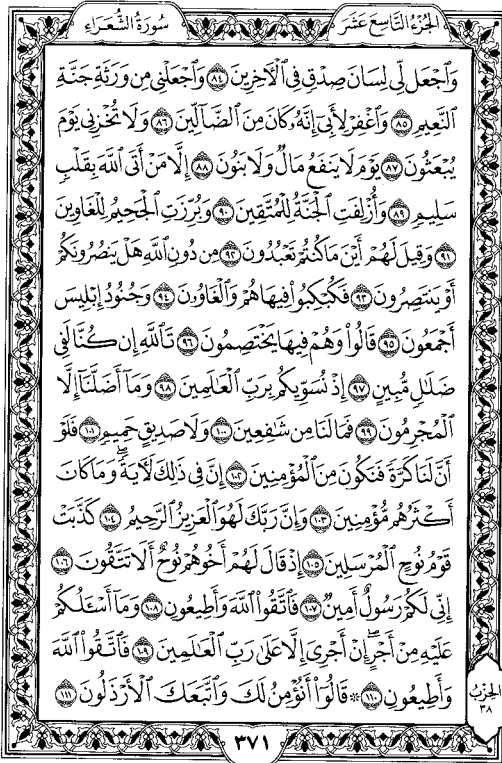 سُورَةُ الشُّعَرَاءِ
الجُزْءُ التَّاسِعَ عَشَرَ
وَٱجْعَل لِّى لِسَانَ صِدْقٍ فِى ٱلْأَخِرِينَ ٨٤ وَٱجْعَلْنِى مِن وَرَثَةِ جَنَّةِ
ٱلنَّعِيمِ ٨٥ وَٱغْفِرْ لِأَبِىٓ إِنَّهُۥ كَانَ مِنَ ٱلضَّآلِّينَ ٨٦ وَلَا تُخْزِنِى يَوْمَ
يُبْعَثُونَ ٨٧ يَوْمَ لَا يَنفَعُ مَالٌ وَلَا بَنُونَ ٨٨ إِلَّا مَنْ أَتَى ٱللَّهَ بِقَلْبٍ
سَلِيمٍ ٨٩ وَأُزْلِفَتِ ٱلْجَنَّةُ لِلْمُتَّقِينَ ٩٠ وَبُرِّزَتِ ٱلْجَحِيمُ لِلْغَاوِينَ
٩١ وَقِيلَ لَهُمْ أَيْنَ مَا كُنتُمْ تَعْبُدُونَ ٩٢ مِن دُونِ ٱللَّهِ هَلْ يَنصُرُونَكُمْ
أَوْ يَنتَصِرُونَ ٩٣ فَكُبْكِبُوا۟ فِيهَا هُمْ وَٱلْغَاوُۥنَ ٩٤ وَجُنُودُ إِبْلِيسَ
أَجْمَعُونَ ٩٥ قَالُوا۟ وَهُمْ فِيهَا يَخْتَصِمُونَ ٩٦ تَٱللَّهِ إِن كُنَّا لَفِى
ضَلَٰلٍ مُّبِينٍ ٩٧ إِذْ نُسَوِّيكُم بِرَبِّ ٱلْعَٰلَمِينَ ٩٨ وَمَآ أَضَلَّنَآ إِلَّا
ٱلْمُجْرِمُونَ ٩٩ فَمَا لَنَا مِن شَٰفِعِينَ ١٠٠ وَلَا صَدِيقٍ حَمِيمٍ ١٠١ فَلَوْ
أَنَّ لَنَا كَرَّةً فَنَكُونَ مِنَ ٱلْمُؤْمِنِينَ ١٠٢ إِنَّ فِى ذَٰلِكَ لَأَيَةً ۖ وَمَا كَانَ
أَكْثَرُهُم مُّؤْمِنِينَ ١٠٣ وَإِنَّ رَبَّكَ لَهُوَ ٱلْعَزِيزُ ٱلرَّحِيمُ ١٠٤ كَذَّبَتْ
قَوْمُ نُوحٍ ٱلْمُرْسَلِينَ ١٠٥ إِذْ قَالَ لَهُمْ أَخُوهُمْ نُوحٌ أَلَا تَتَّقُونَ ١٠٦
إِنِّى لَكُمْ رَسُولٌ أَمِينٌ ١٠٧ فَٱتَّقُوا۟ ٱللَّهَ وَأَطِيعُونِ ١٠٨ وَمَآ أَسْـَٔلُكُمْ
عَلَيْهِ مِنْ أَجْرٍ ۖ إِنْ أَجْرِىَ إِلَّا عَلَىٰ رَبِّ ٱلْعَٰلَمِينَ ١٠٩ فَٱتَّقُوا۟ ٱللَّهَ
وَأَطِيعُونِ ١١٠ ۞ قَالُوٓا۟ أَنُؤْمِنُ لَكَ وَٱتَّبَعَكَ ٱلْأَرْذَلُونَ ١١١
الحِزْبُ
٣٨
٣٧١